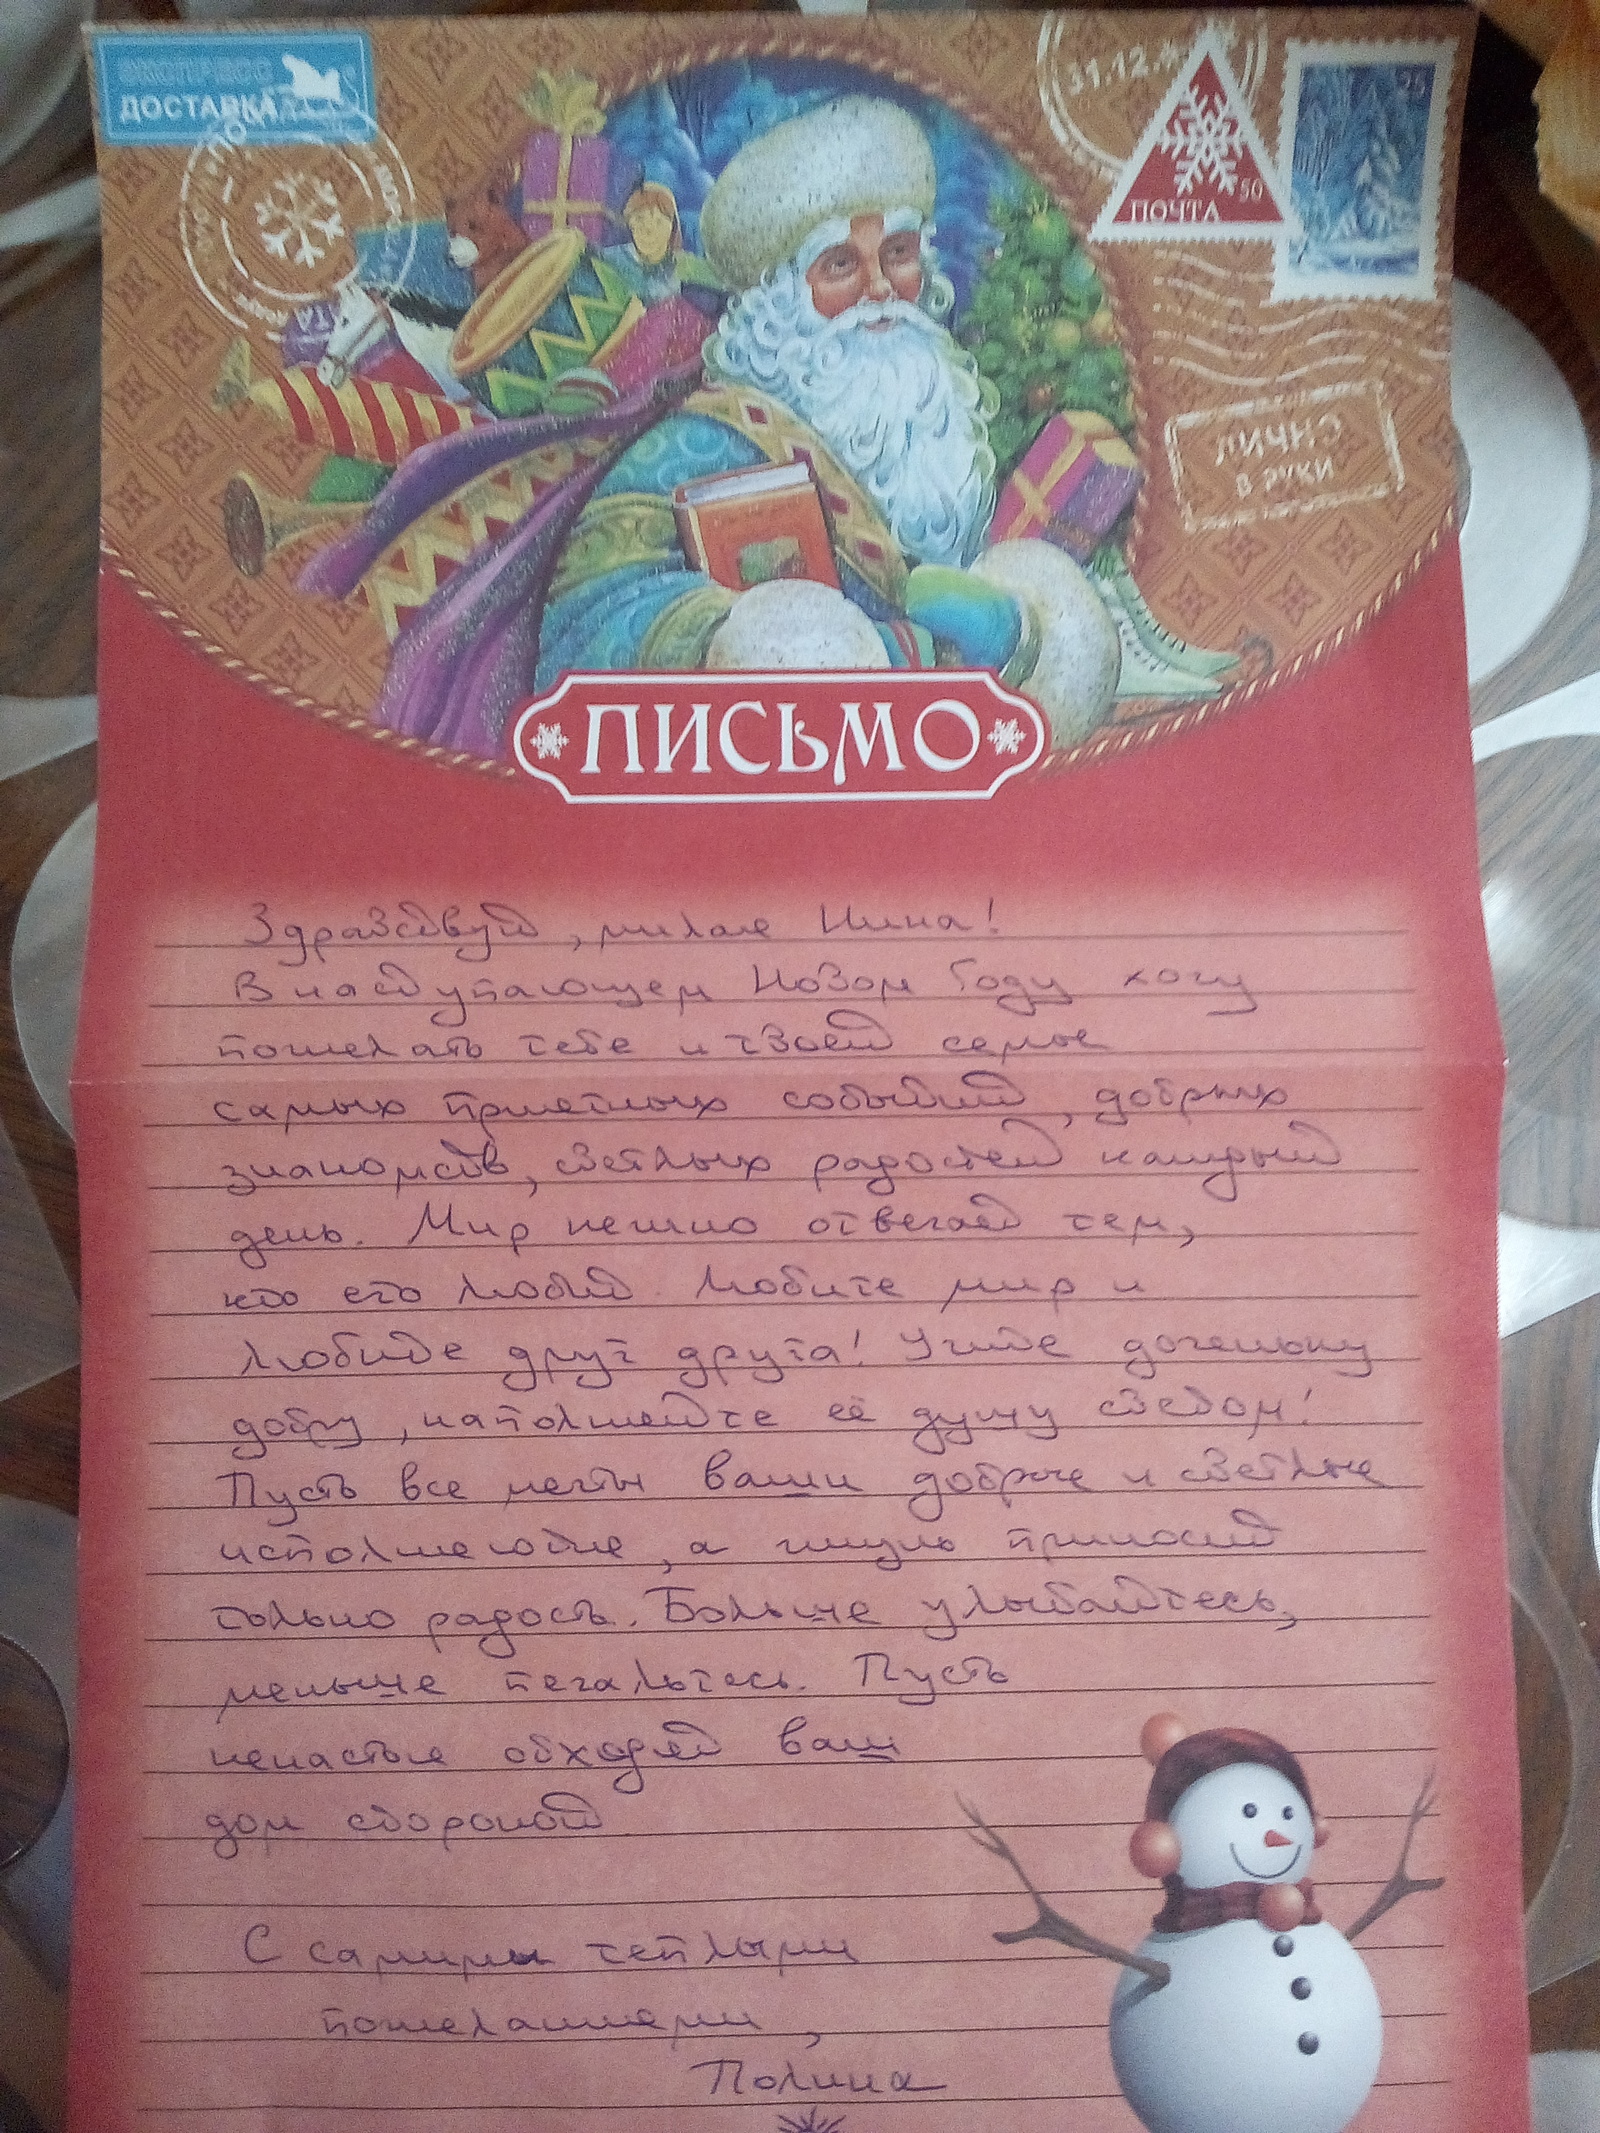 ЭКСПРЕСС
ДОСТАВКА
31.12.
50
ПОЧТА
25
ЛИЧНО
В РУКИ
ПИСЬМО
Здравствуй, милая Нина!
В наступающем Новом Году хочу
пожелать тебе и твоей семье
самых приятных событий, добрых
знакомств, светлых радостей каждый
день. Мир нежно отвечает тем,
кто его любит. Любите мир и
любите друг друга! Учите доченьку
добру, наполняйте её душу светом!
Пусть все мечты ваши добрые и светлые
исполняются, а жизнь приносит
только радость. Больше улыбайтесь,
меньше печальтесь. Пусть
ненастья обходят ваш
дом стороной
С самыми теплыми
пожеланиями,
Полина